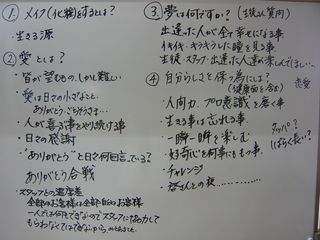 ①メイク(化粧)をするとは?
・生きる源
②愛とは?
・皆が望むもの、しかし難しい
・愛は日々の小さなこと。
ありがとう。ごちそうさま…
・人が喜ぶ事をやり続ける事
・日々の感謝
・"ありがとう"と日々何回言っている?
ありがとう合戦
・スタッフとの温度差
全部のお客様は全部のお客様
一人では何もできないのでスタッフに協力して
もらわなくてはできないから
③夢は何ですか?(生徒い質問)
出逢った人が全て幸せになる事
イキイキ・キラキラした瞳を見る事
生徒・スタッフ・出逢った人達が楽しんでほしい…
④自分らしさを保つ為には?
(健康面を含む)
恋愛
・人間力、プロ意識を磨く事
・生きる事は忘れる事
・一瞬一瞬を楽しむ
・好奇心を何事にももつ事
・チャレンジ
・皆さんとの夜…………